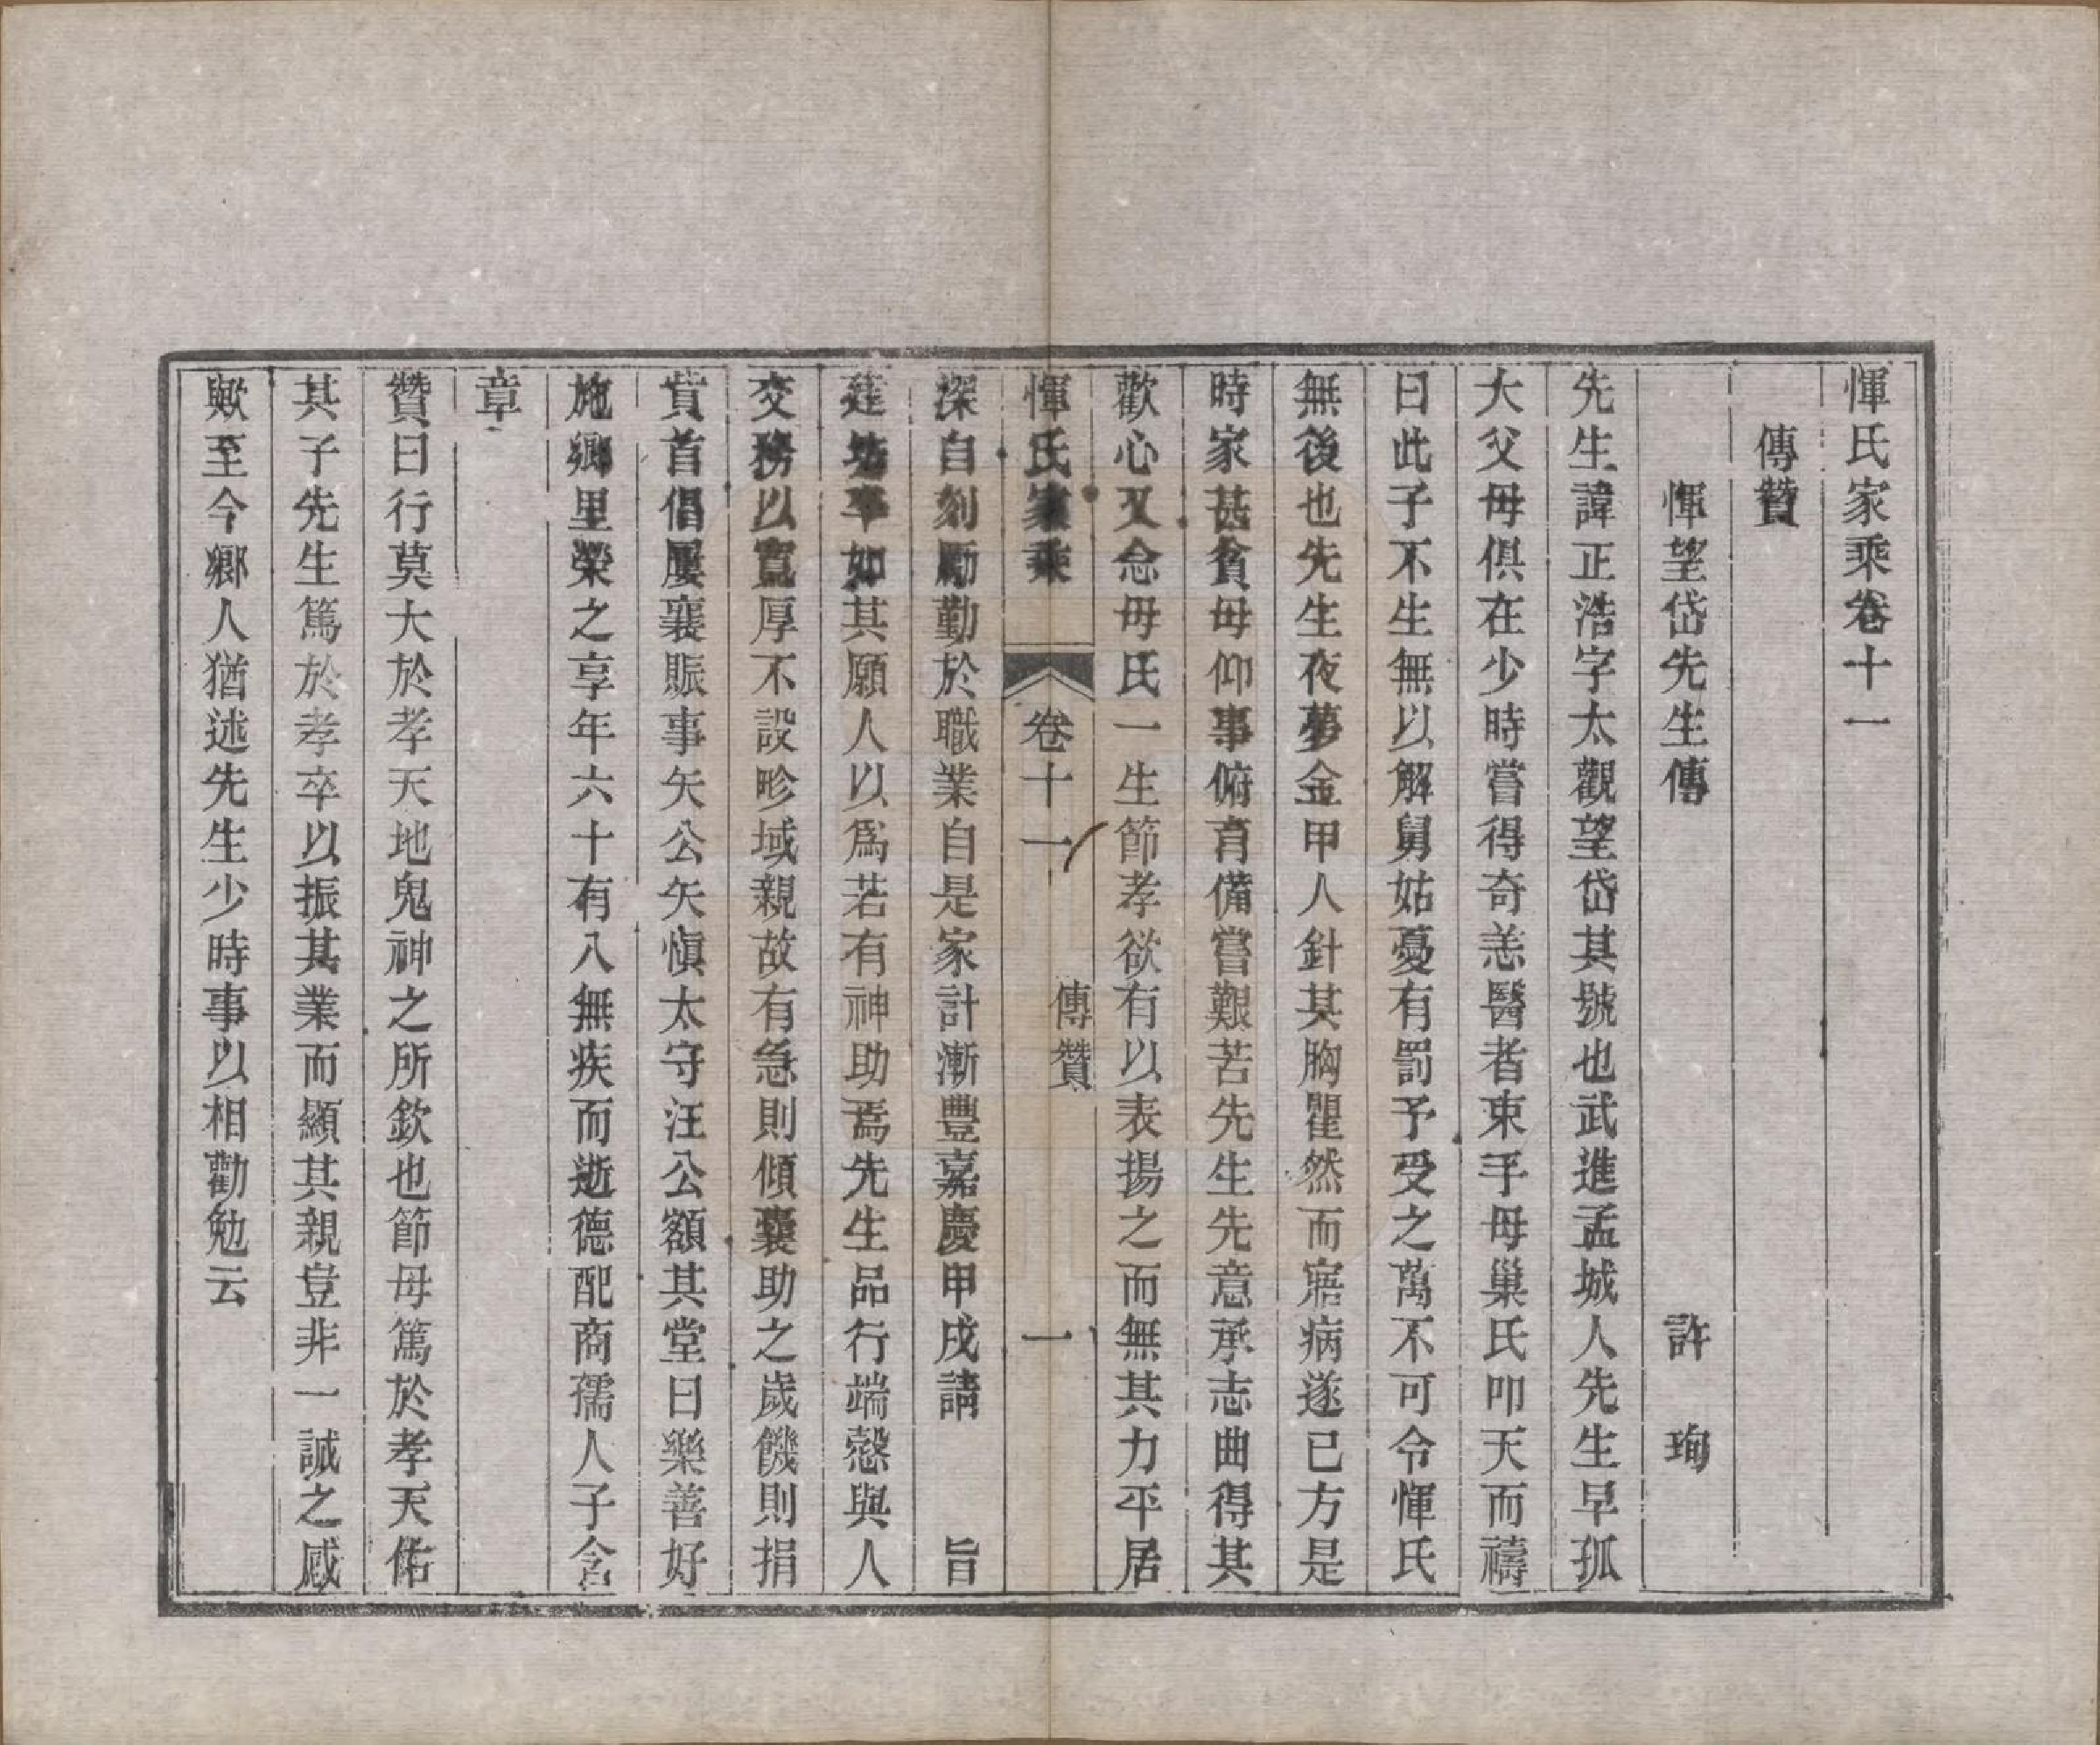 惲氏家乘卷十一
傳贊
惲望岱先生傳　許　珣
先生諱正浩字太觀望岱其號也武進孟城人先生早孤
大父母俱在少時嘗得奇恙醫者束手母巢氏叩天而禱
曰此子不生無以解舅姑憂有罰予受之萬不可令惲氏
無後也先生夜夢金甲人針其胸瞿然而寤病遂已方是
時家甚貧母仰事俯育備嘗艱苦先生先意承志曲得其
歡心又念母氏一生節孝欲有以表揚之而無其力平居
惲氏家乘　卷十一　傳贊　一
深自刻勵勤於職業自是家計漸豐嘉慶甲戌請　旨
建坊卒如其願人以爲若有神助焉先生品行端愨與人
交務以寬厚不設畛域親故有急則傾囊助之歲饑則捐
貲首倡屢襄賑事矢公矢愼太守汪公額其堂曰樂善好
施鄉里榮之享年六十有八無疾而逝德配商孺人子含
章
贊曰行莫大於孝天地鬼神之所欽也節母篤於孝天佑
其子先生篤於孝卒以振其業而顯其親豈非一誠之感
歟至今鄉人猶述先生少時事以相勸勉云